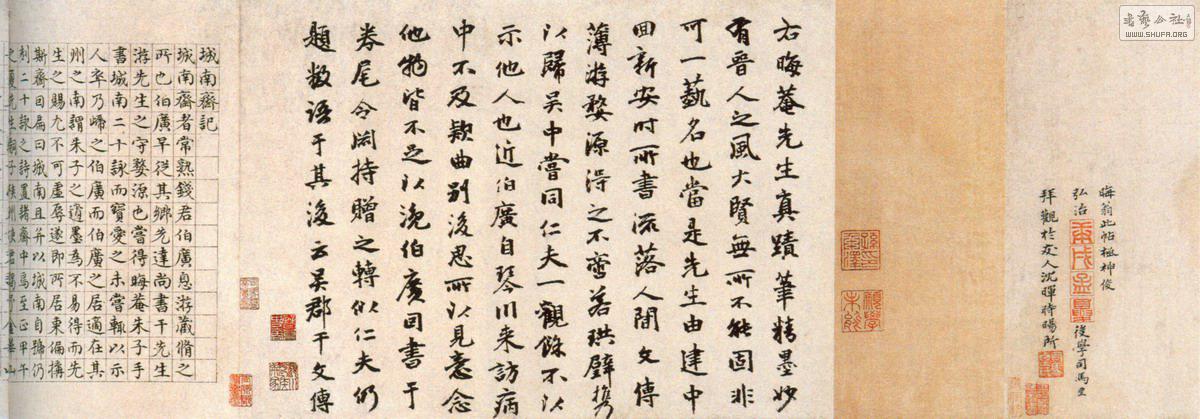 書藝公社
WWW.SHUFA.ORG
晦翁此帖極神俊
弘治
後學司馬
拜觀於友人沈暉時暘所
右晦菴先生真蹟筆精墨妙
有晉人之風大賢無所不能固非
可一藝名也當是先生由建中
回新安時所書流落人間文傳
薄游婺源得之不啻若珙璧攜
以歸吳中嘗同仁夫一觀餘不以
示他人也近伯廣自琴川來訪病
中不及欵曲別後思所以見意念
他物皆不足以浼伯廣回書于
券尾令閎持贈之轉似仁夫仍
題數語于其後云吳郡干文傳
城南齋記
城南齋者常熟錢君伯廣息游藏脩之
所也伯廣早從其鄉先達尚書干先生
游先生之守婺源也嘗得晦菴朱子手
書城南二十詠而寶愛之未嘗輒以示
人卒乃歸之伯廣而伯廣之居適在其
州之南謂朱子之遺墨為不易得而先
生之賜尤不可虛辱遂即所居東偏搆
斯齋曰扁曰城南且并以城南自號仍
刻二十詠之詩置諸齋中焉至正甲午
之夏